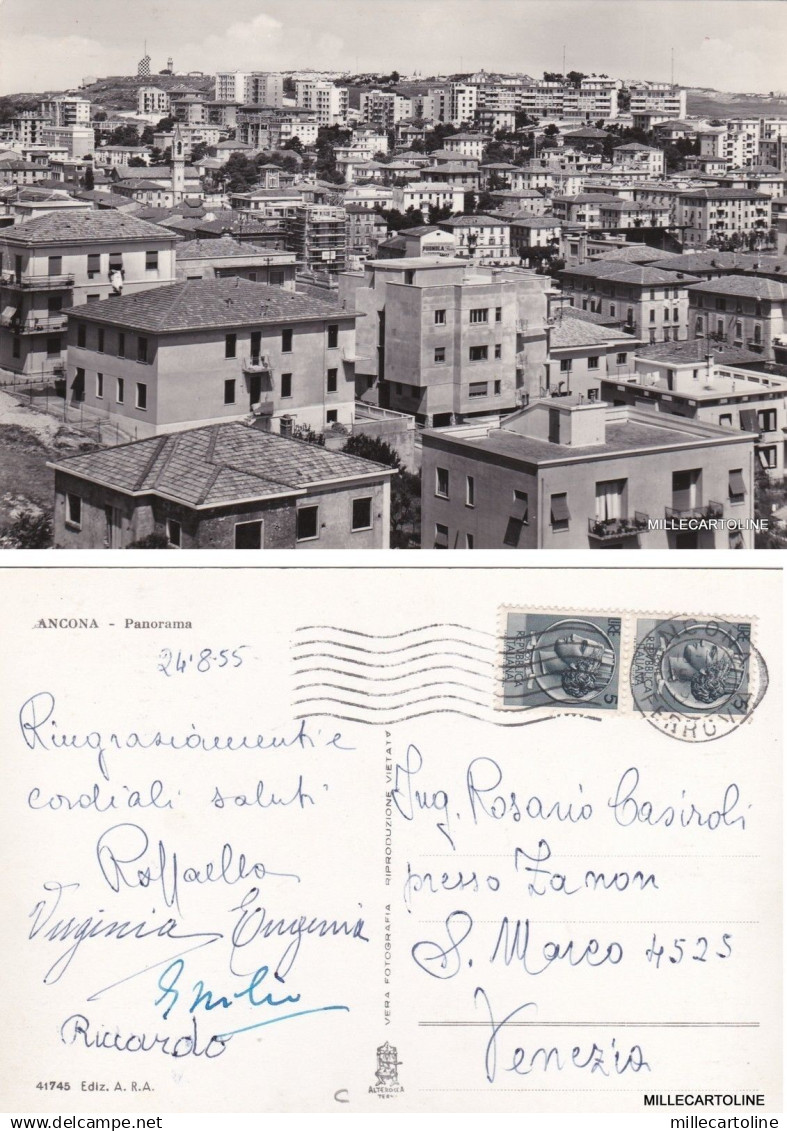 MILLECARTOLINE
ANCONA - Panorama
24·8·55
Ringraziamenti e
cordiali saluti
Raffaella
Virginia Eugenia
Emilio
Riccardo
41745 Ediz. A. R. A.
VERA FOTOGRAFIA RIPRODUZIONE VIETATA
ALTEROCCA
TERNI
C
LIRE
REPVBBLICA
ITALIANA
5
LIRE
REPVBBLICA
ITALIANA
5
ANCONA
FERROV
Ing. Rosario Casiroli
presso Zanon
S. Marco 4525
Venezia
MILLECARTOLINE
delcampe.net
millecartoline